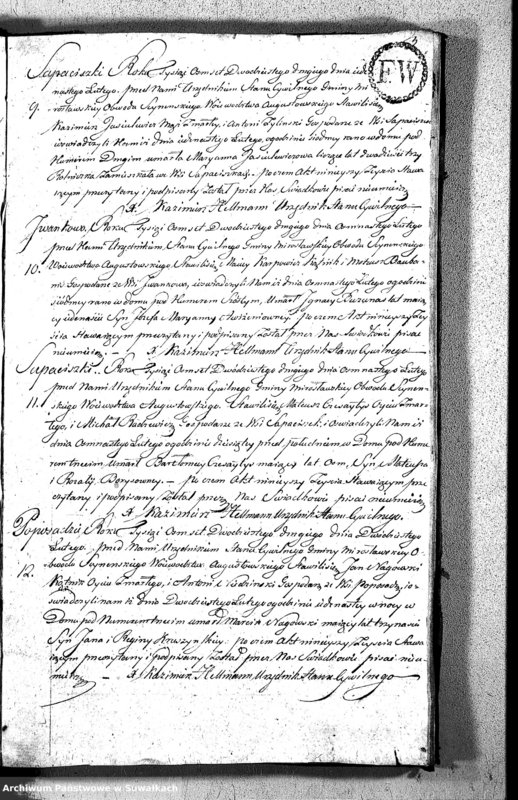 EW
Sapaciszki Roku Tysiąc Osmset Dwudziestego drugiego dnia iede-
nastego Lutego. przed Nami Urzędnikiem Stanu Cywilnego Gminy Mi-
9. rosławskiey Obwodu Seynenskiego Woiewodztwa Augustowskiego Stawili się
Kazimierz Jasiulewicz Mąż Zmarłey, i Antoni Zylinski Gospodarze ze Wsi Sapaciszek
oswiadczyli Nam iż dnia iedenastego Lutego, ogodzinie siodmey rano w domu pod
Numerem Drugim umarła Maryanna Jasiulewiczowa licząca lat dwadziescia trzy
Rolniczka Zamieszkała we Wsi Sapaciszkach. poczem Akt ninieyszy Zeyscia Stawa-
iącym przeczytany i podpisany Został przez Nas, Swiadkowie pisać nieumieią
X. Kazimierz Hellmann Urzędnik Stanu Cywilnego
Iwankowo, Roku Tysiąc Osmset Dwudziestego drugiego dnia Osmnastego Lutego
przed Nami Urzędnikiem Stanu Cywilnego Gminy Mirosławskiey Obwodu Seynenskiego
10. Woiewodztwa Augustowskiego Stawili się Maciey Karpowicz Kątnik i Mateusz
Gospodarze ze Wsi Iwankowa, oswiadczyli Nam iż dnia Osmnastego Lutego ogodzinie
siodmey rano w domu pod Numerem Siodmym, Umarł Ignacy lat maią-
cy iedenascie Syn Jozefa i Maryanny. poczem Akt ninieyszy Zey-
scia Stawaiącym przeczytany i podpisany Został przez Nas Swiadkowie pisać
nieumieią. X. Kazimierz Hellmann Urzędnik Stanu Cywilnego
Sapaciszki. Roku Tysiąc Osmset Dwudziestego drugiego dnia Osmnastego Lutego
przed Nami Urzędnikiem Stanu Cywilnego Gminy Mirosławskiey Obwodu Seynen-
11. skiego Woiewodztwa Augustowskiego. Stawili się Mateusz Oyciec Zmar-
łego, i Michał Radzewicz Gospodarze ze Wsi Sapaciszek, i oswiadczyli Nam iż
dnia Osmnastego Lutego ogodzinie dziesiątey przed południem w Domu pod Nume-
rem trzecim umarł Bartłomiey maiący lat Osm, Syn Mateusza
i Rozalii Borysowney. poczem Akt ninieyszy Zeyscia Stawaiącym prze-
czytany i podpisany Został przez Nas Swiadkowie pisać nieumieią
X. Kazimierz Hellmann Urzędnik Stanu Cywilnego.
Poposadzie Roku Tysiąc Osmset Dwudziestego drugiego dnia Dwudziestego
Lutego. przed Nami Urzędnikiem Stanu Cywilnego Gminy Mirosławskiey O-
12. bwodu Seynenskiego Woiewodztwa Augustowskiego Stawili się Jan Nagowski
Kątnik Oyciec Zmarłego, i Antoni Gospodarz ze Wsi Poposadzie, o-
swiadczyli nam iż dnia Dwudziestego Lutego ogodzinie iedenastey w nocy w
Domu pod Numerem trzecim umarł Marcin Nagowski maiący lat trzynascie
Syn Jana i Reginy Kruszynskiey: poczem Akt ninieyszy Zeyscia Stawa-
iącym przeczytany i podpisany Został przez Nas Swiadkowie pisać nieu-
mieią. X. Kazimierz Hellmann Urzędnik Stanu Cywilnego
Archiwum Państwowe w Suwałkach